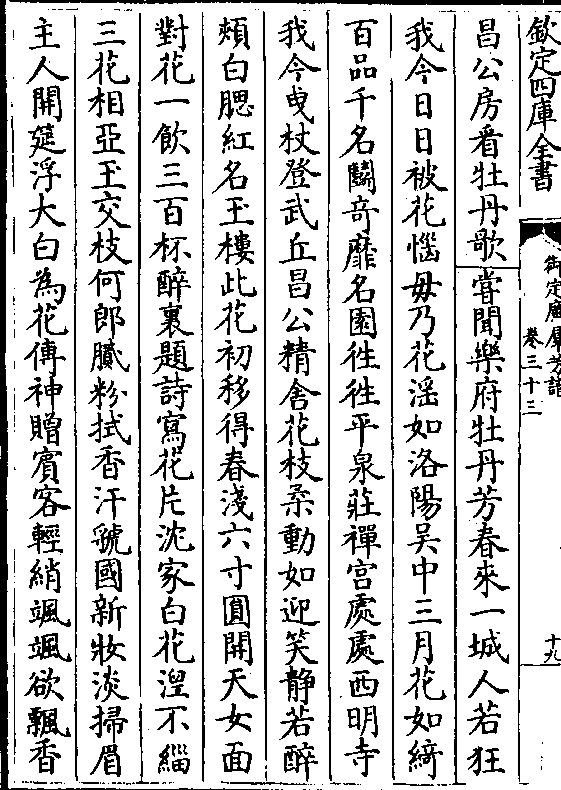 欽定四庫全書
御定廣羣芳譜
卷三十三
十九
昌公房看牡丹歌 嘗聞樂府牡丹芳春來一城人若狂
我今日日被花惱毋乃花淫如洛陽吴中三月花如綺
百品千名鬭奇靡名園徃徃平泉莊禪宫處處西明寺
我今曵杖登武丘昌公精舍花枝柔動如迎笑静若醉
頰白腮紅名玉樓此花初移得春淺六寸圓開天女面
對花一飲三百杯醉裏題詩寫花片沈家白花涅不緇
三花相亞玉交枝何郎膩粉拭香汗虢國新妝淡掃眉
主人開筵浮大白為花傳神贈賓客輕綃颯颯欲飄香